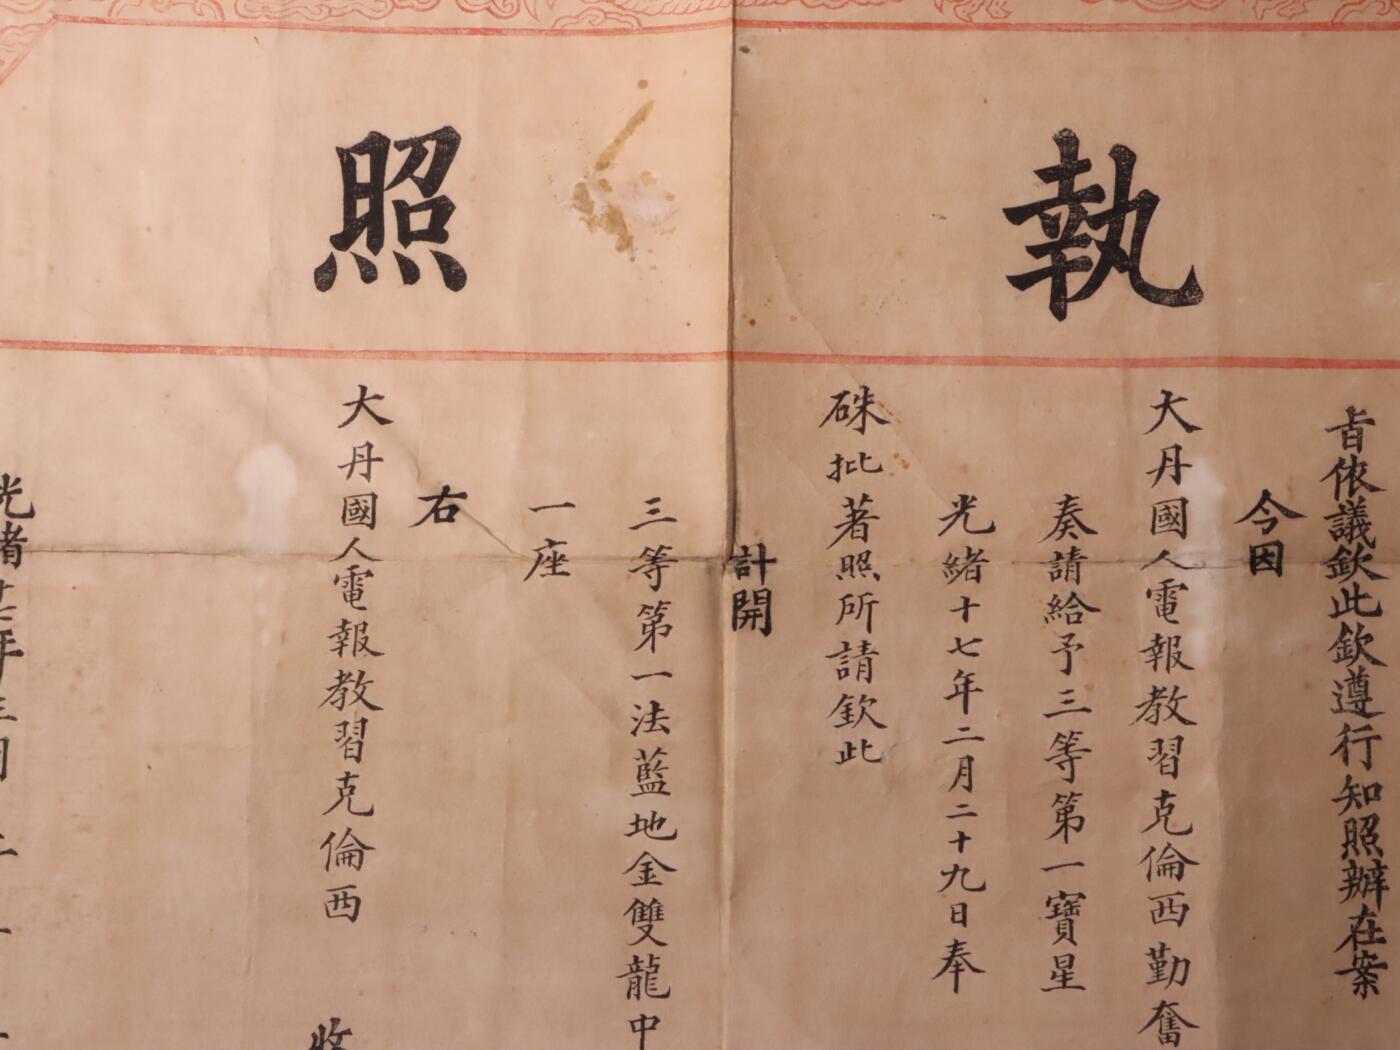 執照
旨依議欽此欽遵行知照辦在案
今因
大丹國人電報教習克倫西勤奮
奏請給予三等第一寶星
光緒十七年二月二十九日奉
硃批著照所請欽此
計開
三等第一法藍地金雙龍中
一座
右
大丹國人電報教習克倫西
收
光緒十七年三月二十